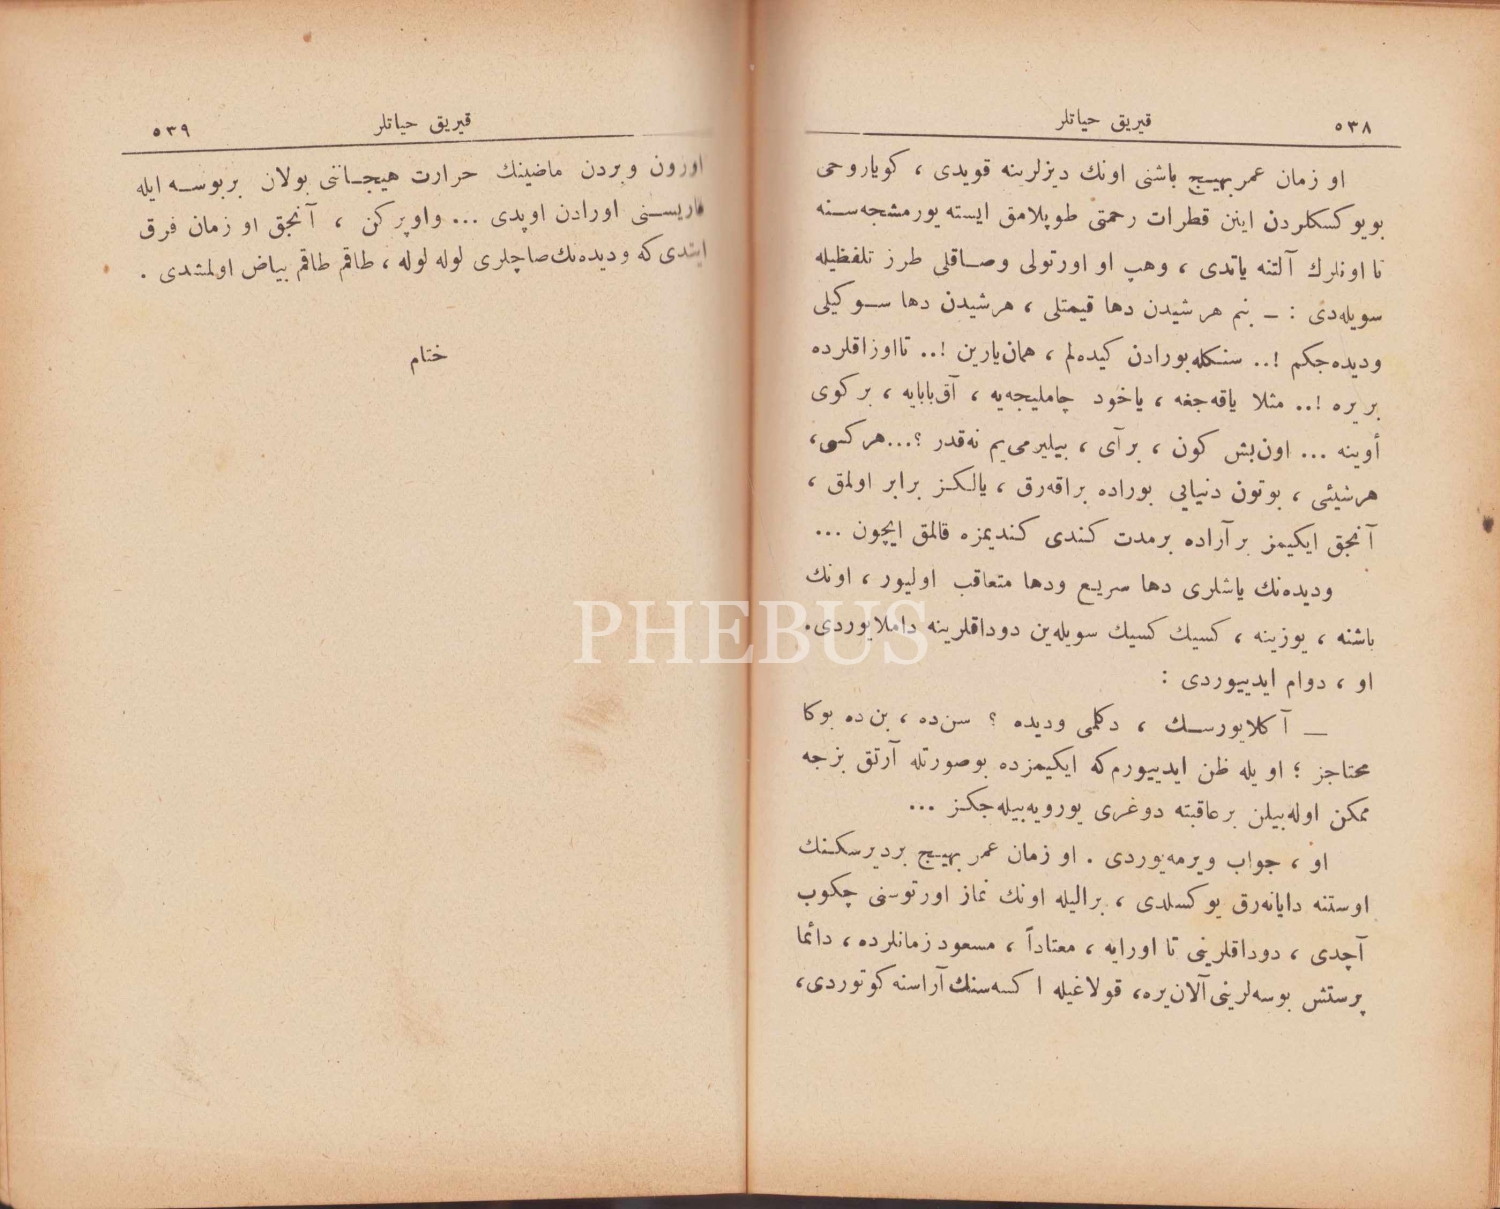 ٥٣٨
قيريق حياتلر
او زمان عمر بهيج باشنى اونك ديزلرينه قويدى ، كويا روحى
بو يوكسكلردن اينن قطرات رحمتى طوپلامق ايسته يورمشجه‌سنه
تا اونلرك آلتنه ياتدى ، وهپ او اورتولى وصاقلى طرز تلفظيله
سويله‌دى : ــ بنم هرشيدن دها قيمتلى ، هرشيدن دها سوكيلى
وديده‌جكم !.. سنكله بورادن كيده‌لم ، همان يارين !.. تا اوزاقلرده
بر يره !.. مثلا ياقه‌جغه ، ياخود چامليجه‌يه ، آق‌بابايه ، بر كوى
أوينه ... اون‌بش كون ، بر آى ، بيلير مى‌يم نه‌قدر ؟... هركسى،
هرشيئى ، بوتون دنيايى بوراده براقه‌رق ، يالكز برابر اولمق ،
آنجق ايكيمز بر آراده برمدت كندى كنديمزه قالمق ايچون ...
وديده‌نك ياشلرى دها سريع ودها متعاقب اوليور ، اونك
باشنه ، يوزينه ، كسيك كسيك سويله‌ين دوداقلرينه داملايوردى.
او ، دوام ايدييوردى :
ــ آكلايورسك ، دكلمى وديده ؟ سن‌ده ، بن‌ده بوكا
محتاجز ؛ اويله ظن ايدييورم كه ايكيمزده بوصورتله آرتق بزجه
ممكن اوله‌بيلن بر عاقبته دوغرى يورويه‌بيله‌جكز ...
او ، جواب ويرمه‌يوردى . او زمان عمر بهيج بر ديرسكنك
اوستنه دايانه‌رق يوكسلدى ، بر اليله اونك نماز اورتوسنى چكوب
آچدى ، دوداقلرينى تا اورايه ، معتاداً ، مسعود زمانلرده ، دائما
پرستش بوسه‌لرينى آلان يره، قولاغيله اكسه‌سنك آراسنه كوتوردى،
قيريق حياتلر
٥٣٩
اورون وبردن ماضينك حرارت هيجاننى بولان بر بوسه ايله
قاريسنى اورادن اوپدى ... واوپركن ، آنجق او زمان فرق
ايتدى كه وديده‌نك صاچلرى لوله لوله ، طاقم طاقم بياض اولمشدى .
ختام
PHEBUS